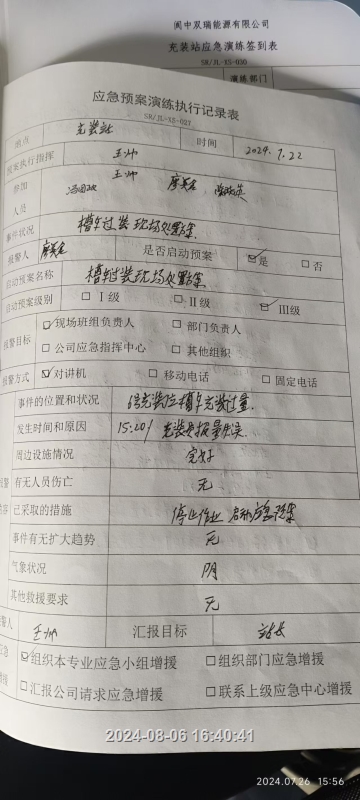 阆中双瑞能源有限公司
充装站应急演练签到表
SR/JL-XS-030
演练部门
应急预案演练执行记录表
SR/JL-XS-029
地点 充装站 时间 2024.7.22
预案执行指挥 王帅
参加 王帅
人员
事件状况 槽车过装现场处置方案
报警人 是否启动预案 ☑是 □否
启动预案名称 槽车过装现场处置方案
启动预案级别 □Ⅰ级 □Ⅱ级 ☑Ⅲ级
报警目标 ☑现场班组负责人 □部门负责人
□公司应急指挥中心 □其他组织
报警方式 ☑对讲机 □移动电话 □固定电话
事件的位置和状况 6号充装位槽车充装过量
发生时间和原因 15:20/ 充装
周边设施情况 完好
有无人员伤亡 无
已采取的措施 停止作业 启动应急预案
事件有无扩大趋势 无
气象状况 阴
其他救援要求 无
王帅 汇报目标 站长
☑组织本专业应急小组增援 □组织部门应急增援
□汇报公司请求应急增援 □联系上级应急中心增援
2024-08-06 16:40:41
2024.07.26 15:56